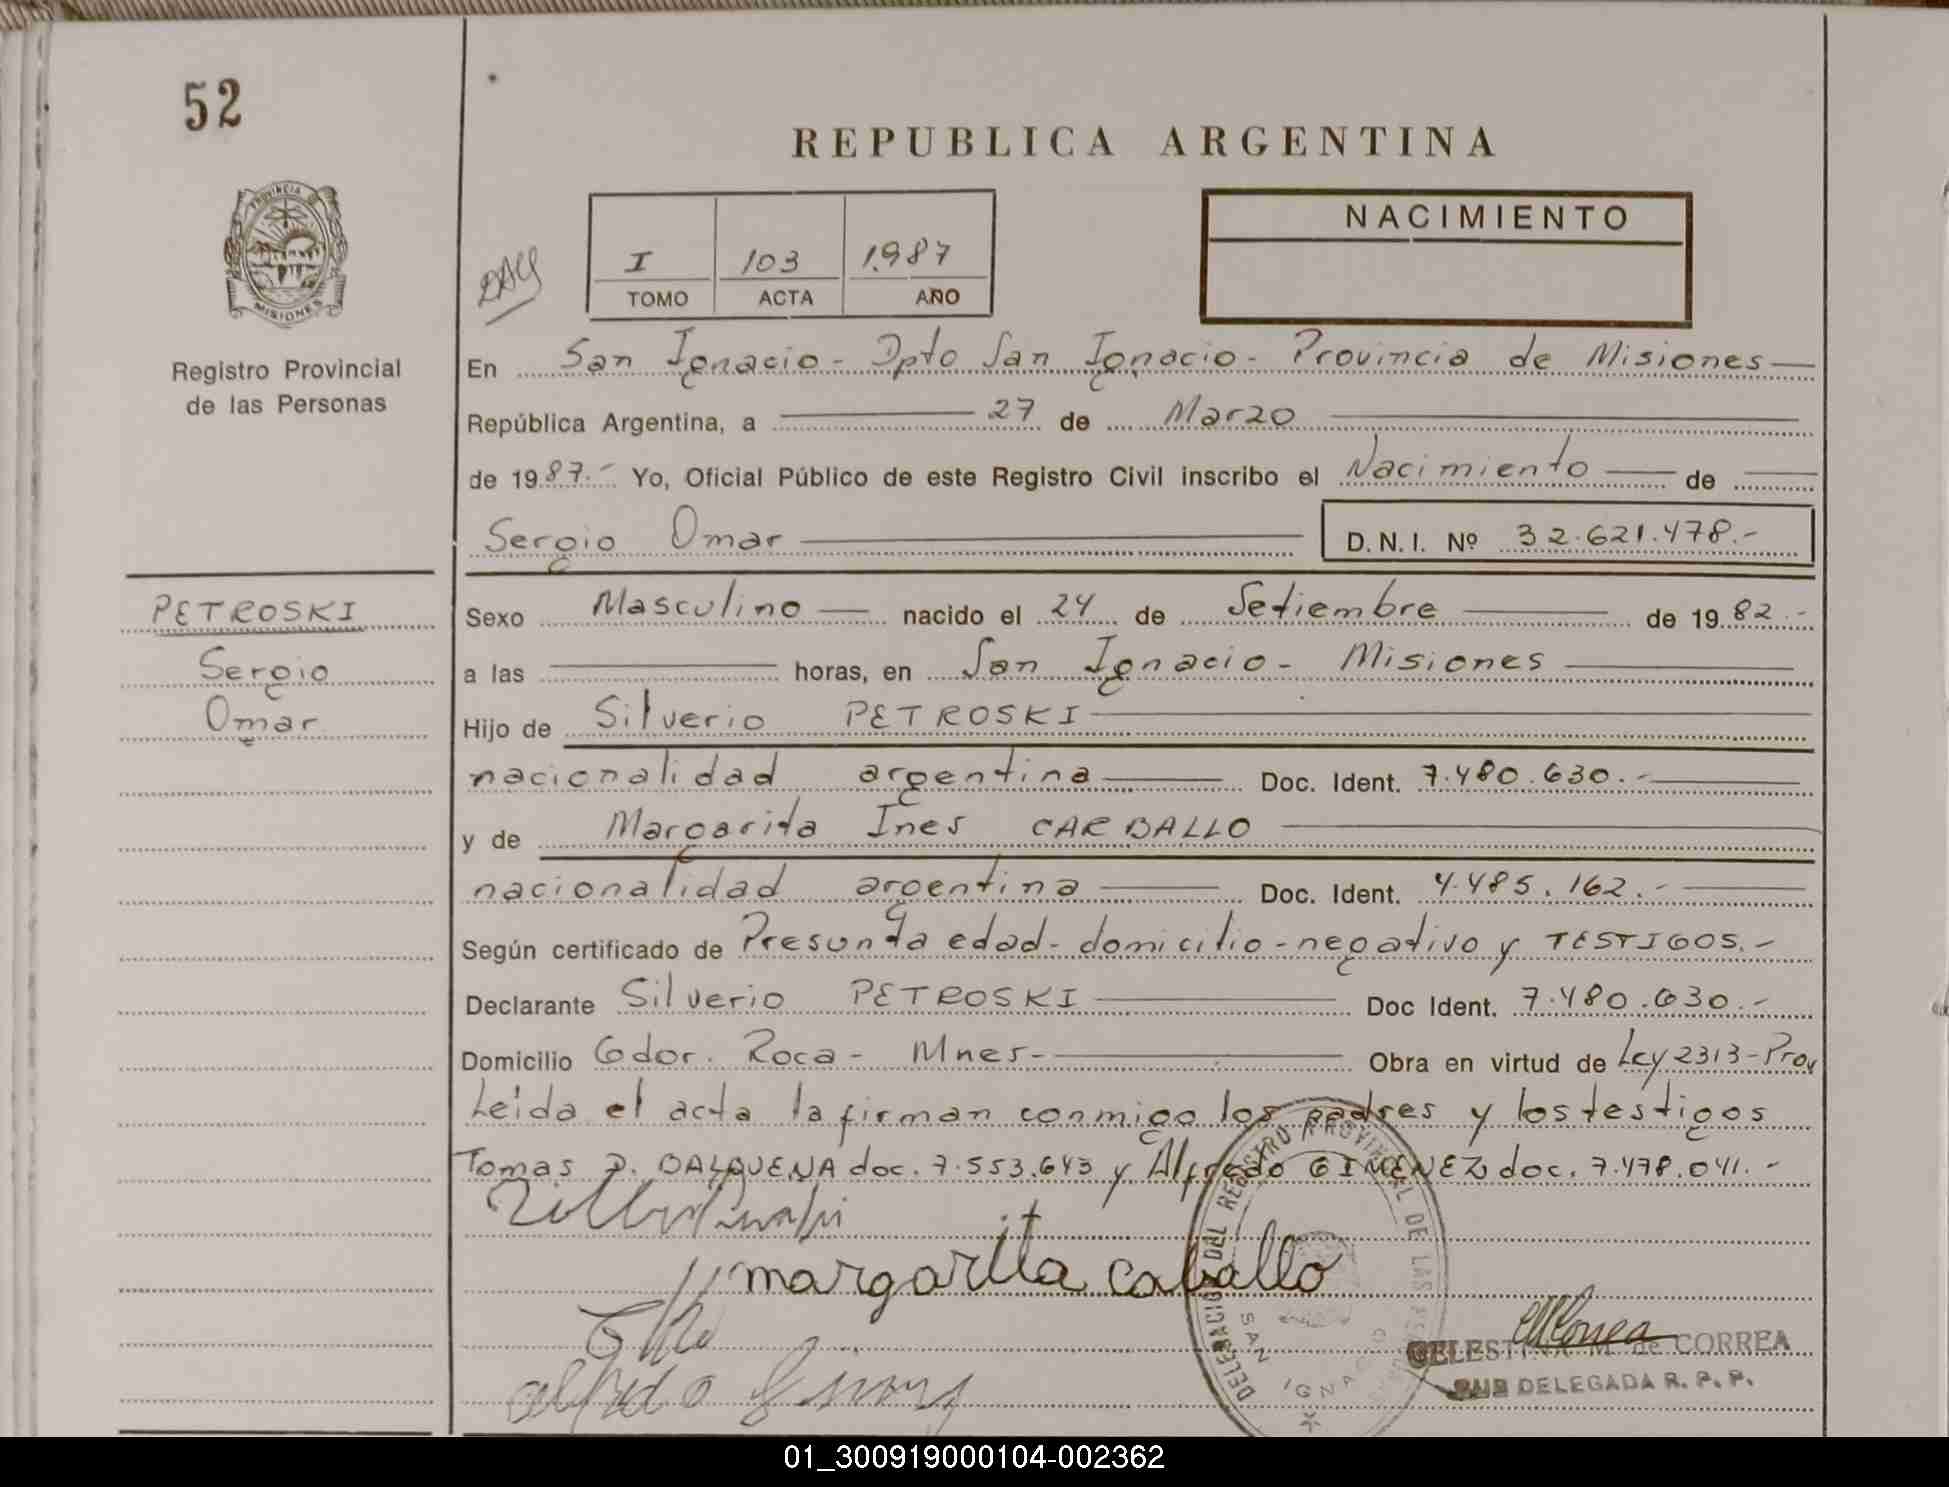 52
REPUBLICA ARGENTINA
PROVINCIA
MISIONES
NACIMIENTO
I 103 1.987
TOMO ACTA AÑO
Registro Provincial
de las Personas
En San Ignacio - Dpto San Ignacio - Provincia de Misiones
República Argentina, a 27 de Marzo
de 1987.- Yo, Oficial Público de este Registro Civil inscribo el Nacimiento de
Sergio Omar D.N.I. Nº 32.621.478.-
PETROSKI
Sergio
Omar
Sexo Masculino nacido el 24 de Setiembre de 1982.-
a las horas, en San Ignacio - Misiones
Hijo de Silverio PETROSKI
nacionalidad argentina Doc. Ident. 7.480.630.-
y de Margarita Ines CARBALLO
nacionalidad argentina Doc. Ident. 4.485.162.-
Según certificado de Presunta edad - domicilio - negativo y TESTIGOS.-
Declarante Silverio PETROSKI Doc Ident. 7.480.630.-
Domicilio Gdor. Roca - Mnes- Obra en virtud de Ley 2313-Prov
Leida el acta la firman conmigo los padres y los testigos
Tomas D. BALQUENA doc. 7.553.643 y Alfredo GIMENEZ doc. 7.478.041.-
margarita caballo
DELEGACION DEL REGISTRO PROVINCIAL DE LAS
SAN IGNACIO
CELESTINA M. de CORREA
SUB DELEGADA R. P. P.
01_300919000104-002362